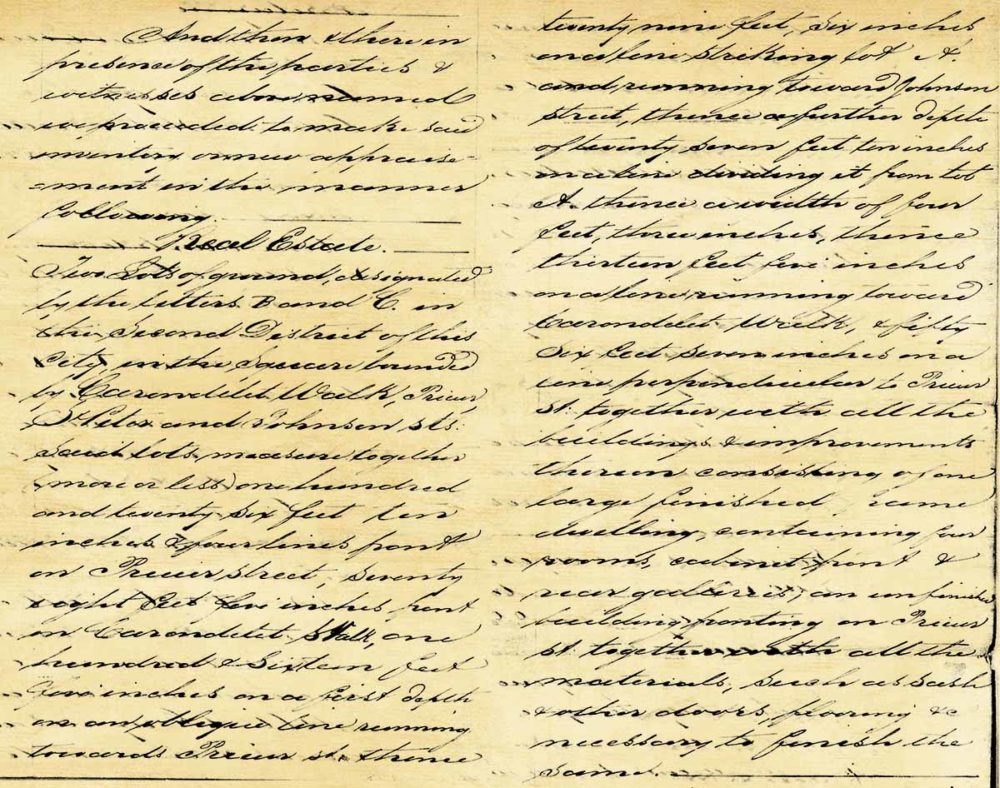 And then & there in
presence of the parties &
witnesses above named
we proceeded to make said
inventory or new appraise-
-ment in the manner
following.
Real Estate.
Two Lots of ground, designated
by the letters B and C. in
the Second District of this
City, in the Square bounded
by Carondelet Walk, Prieur,
St Peter and Johnson sts:
Said lots, measure together
(more or less) one hundred
and twenty six feet ten
inches & four lines front
on Prieur street, seventy
eight feet five inches front
on Carondelet Walk, one
hundred & sixteen feet
five inches on a first depth
on an oblique line running
towards Prieur st. thence
twenty nine feet, six inches
on a line striking lot A.
and running toward Johnson
street, thence a further depth
of twenty seven feet ten inches
on a line dividing it from lot
A. thence a width of four
feet, three inches, thence
thirteen feet five inches
on a line running toward
Carondelet Walk, & fifty
six feet seven inches on a
line perpendicular to Prieur
st: together with all the
buildings & improvements
thereon consisting of one
large finished frame
dwelling, containing four
rooms, cabinet front &
rear galleries; an unfinished
building fronting on Prieur
st. together with all the
materials, such as sash
& other doors, flooring &c
necessary to finish the
same.